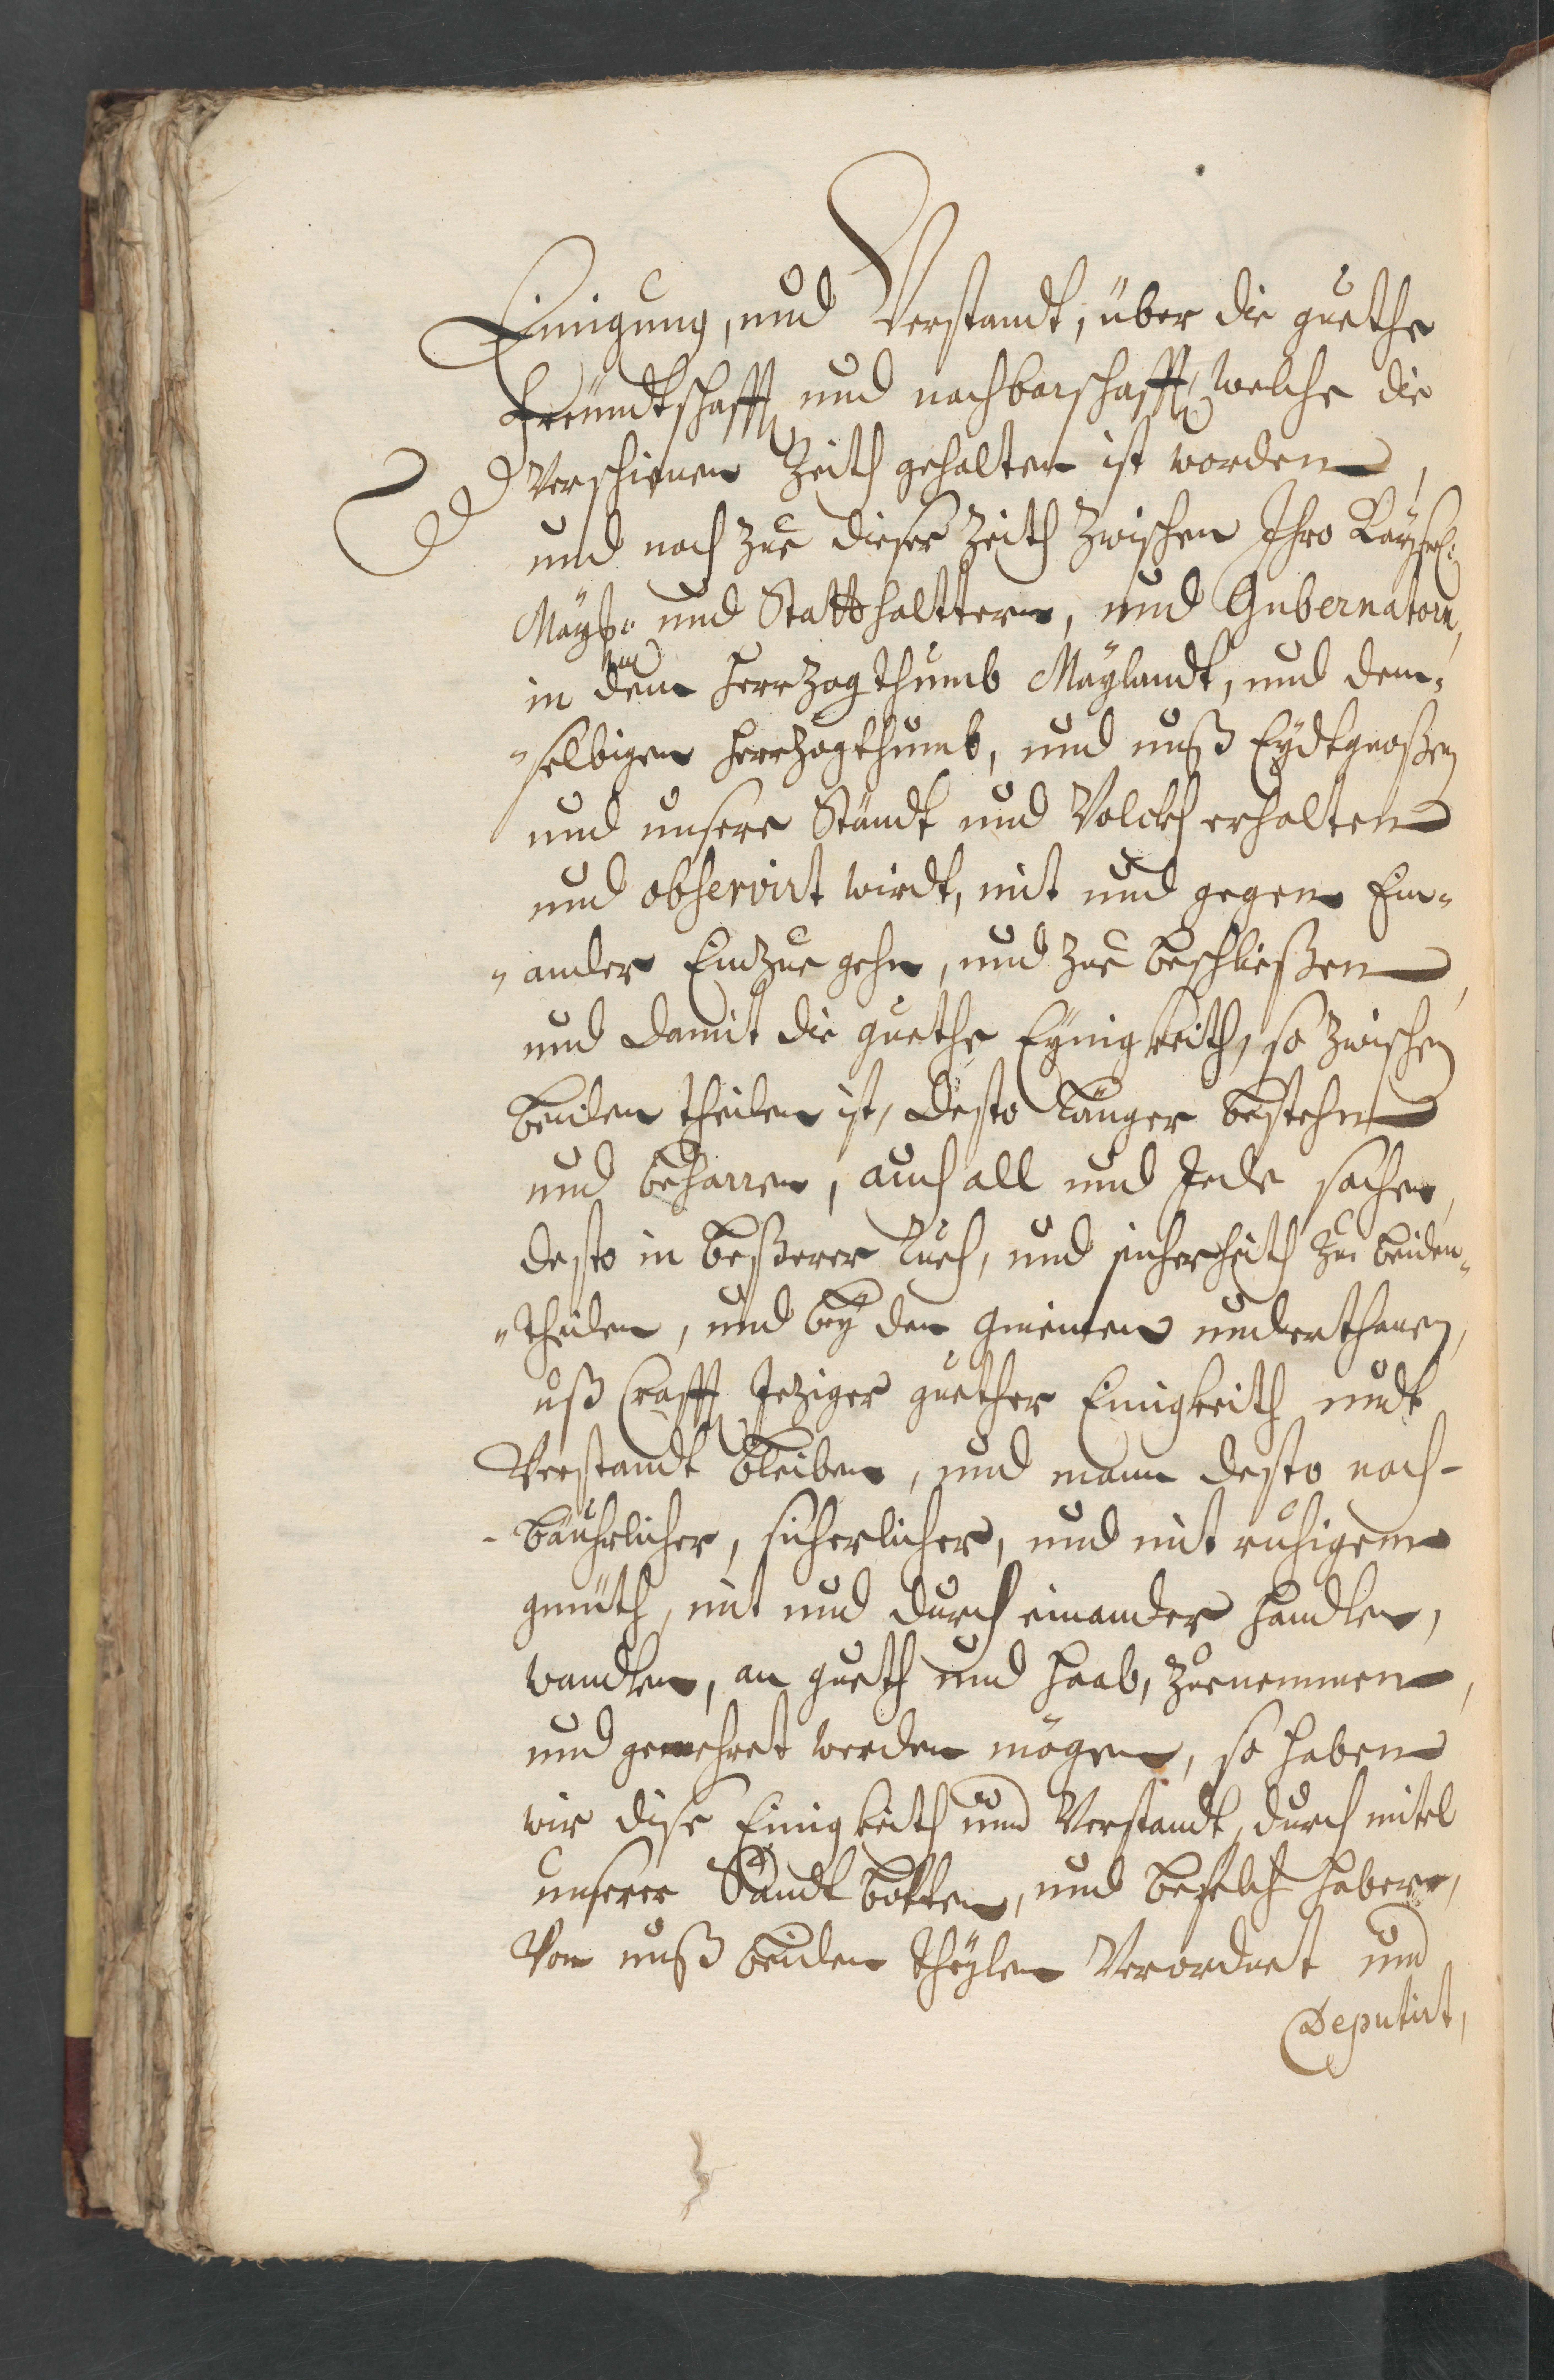 Einigung, und Verstandt, über die guethe
freündtschafft und nachbarschafft, welche die
Verschinen Zeith gehalten ist worden,
und noch zue dieser Zeith zwischen Ihro Kaÿserl:
Maÿst: und Stattthalttern, und Gubernatorn,
in dem Herrzogthumb Maÿlandt, und dem-
-selbigen Herrzogthumb, und unß Eÿdtgnoßen
und unsere Ständt und Volckh erhalten
und observirt wirdt, mit und gegen Ein-
-ander Einzue gehn, und zue beschließen,
und damit die guethe Eÿnigkeith, so zwischen
beiden theilen ist, desto länger bestehn
und beharren, auch all und Jede sachen,
desto in beßerer Rueh, und sicherheith zue beiden-
-theilen, und beÿ den gmeinen underthanen,
uß Crafft Jeziger guether Einigkeith undt
Verstandt bleiben, und mann desto noch-
-bäuhrlicher, sicherlicher, und mit ruhigem
gmüth, mit und durch einander handlen,
wandlen, an gueth und haab, zuenemmen,
und gemehret werden mögen, so haben
wir dise Einigkeith und Verstandt, durch mitel
unserer Sandtbotten, und befelch habere,
Von unß beiden theÿlen Verordnet und
Deputirt,